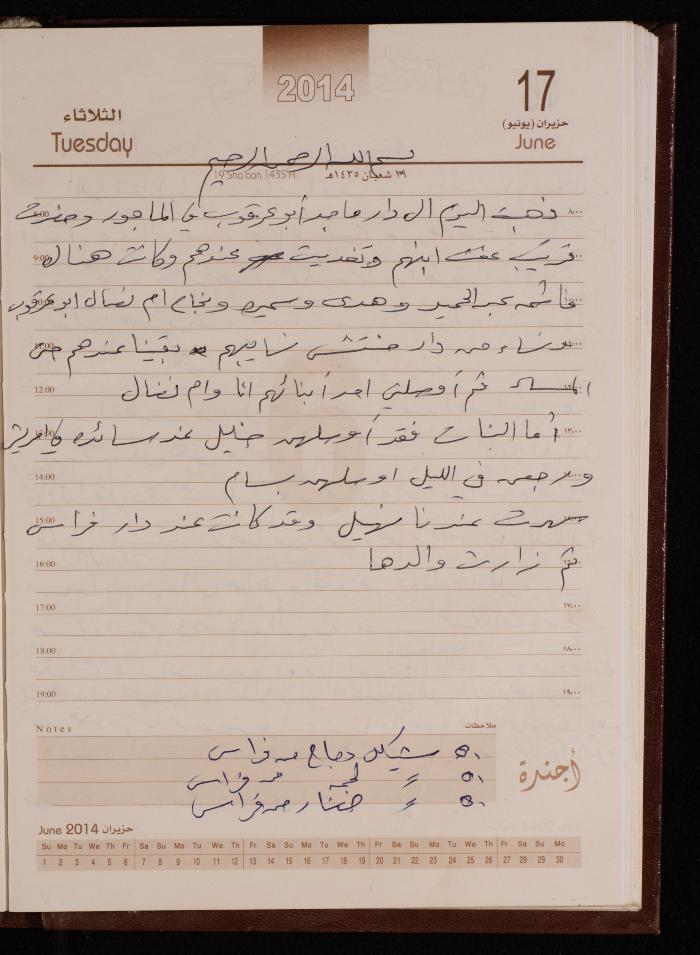 2014
17
الثلاثاء
حزيران (يونيو)
Tuesday
June
بسم الله الرحمن الرحيم
19 Sha'ban 1435 H
١٩ شعبان ١٤٣٥هـ
8:00 ذهبت اليوم الى دار ماجد أبو عرقوب في الماجور وحضرت ٨:٠٠
9:00 عقد ابنهم وتغديت عندهم وكانت هناك
فاطمه عبد الحميد وهدى وسميره ونجاح ام نضال ابو عرقوب
ونساء من دار حنتش نسايبهم بقينا عندهم حتى
12:00 المساء ثم أوصلني احد أبنائهم انا وام نضال
أما البنات فقد أوصلهن خليل عند سائده ١٣:٠٠
14:00 ورجعن في الليل اوصلهن بسام
15:00 سهرت عندنا نهيل وقد كانت عند دار فراس
16:00 ثم زارت والدها
17:00 ١٧:٠٠
18:00 ١٨:٠٠
19:00 ١٩:٠٠
Notes ملاحظات
٥٠ شيكل دجاج من فراس
٥٠ = لحمه من فراس
٥٠ = خضار من فراس
أجندة
June 2014 حزيران
Su Mo Tu We Th Fr Sa Su Mo Tu We Th Fr Sa Su Mo Tu We Th Fr Sa Su Mo Tu We Th Fr Sa Su Mo
1 2 3 4 5 6 7 8 9 10 11 12 13 14 15 16 17 18 19 20 21 22 23 24 25 26 27 28 29 30